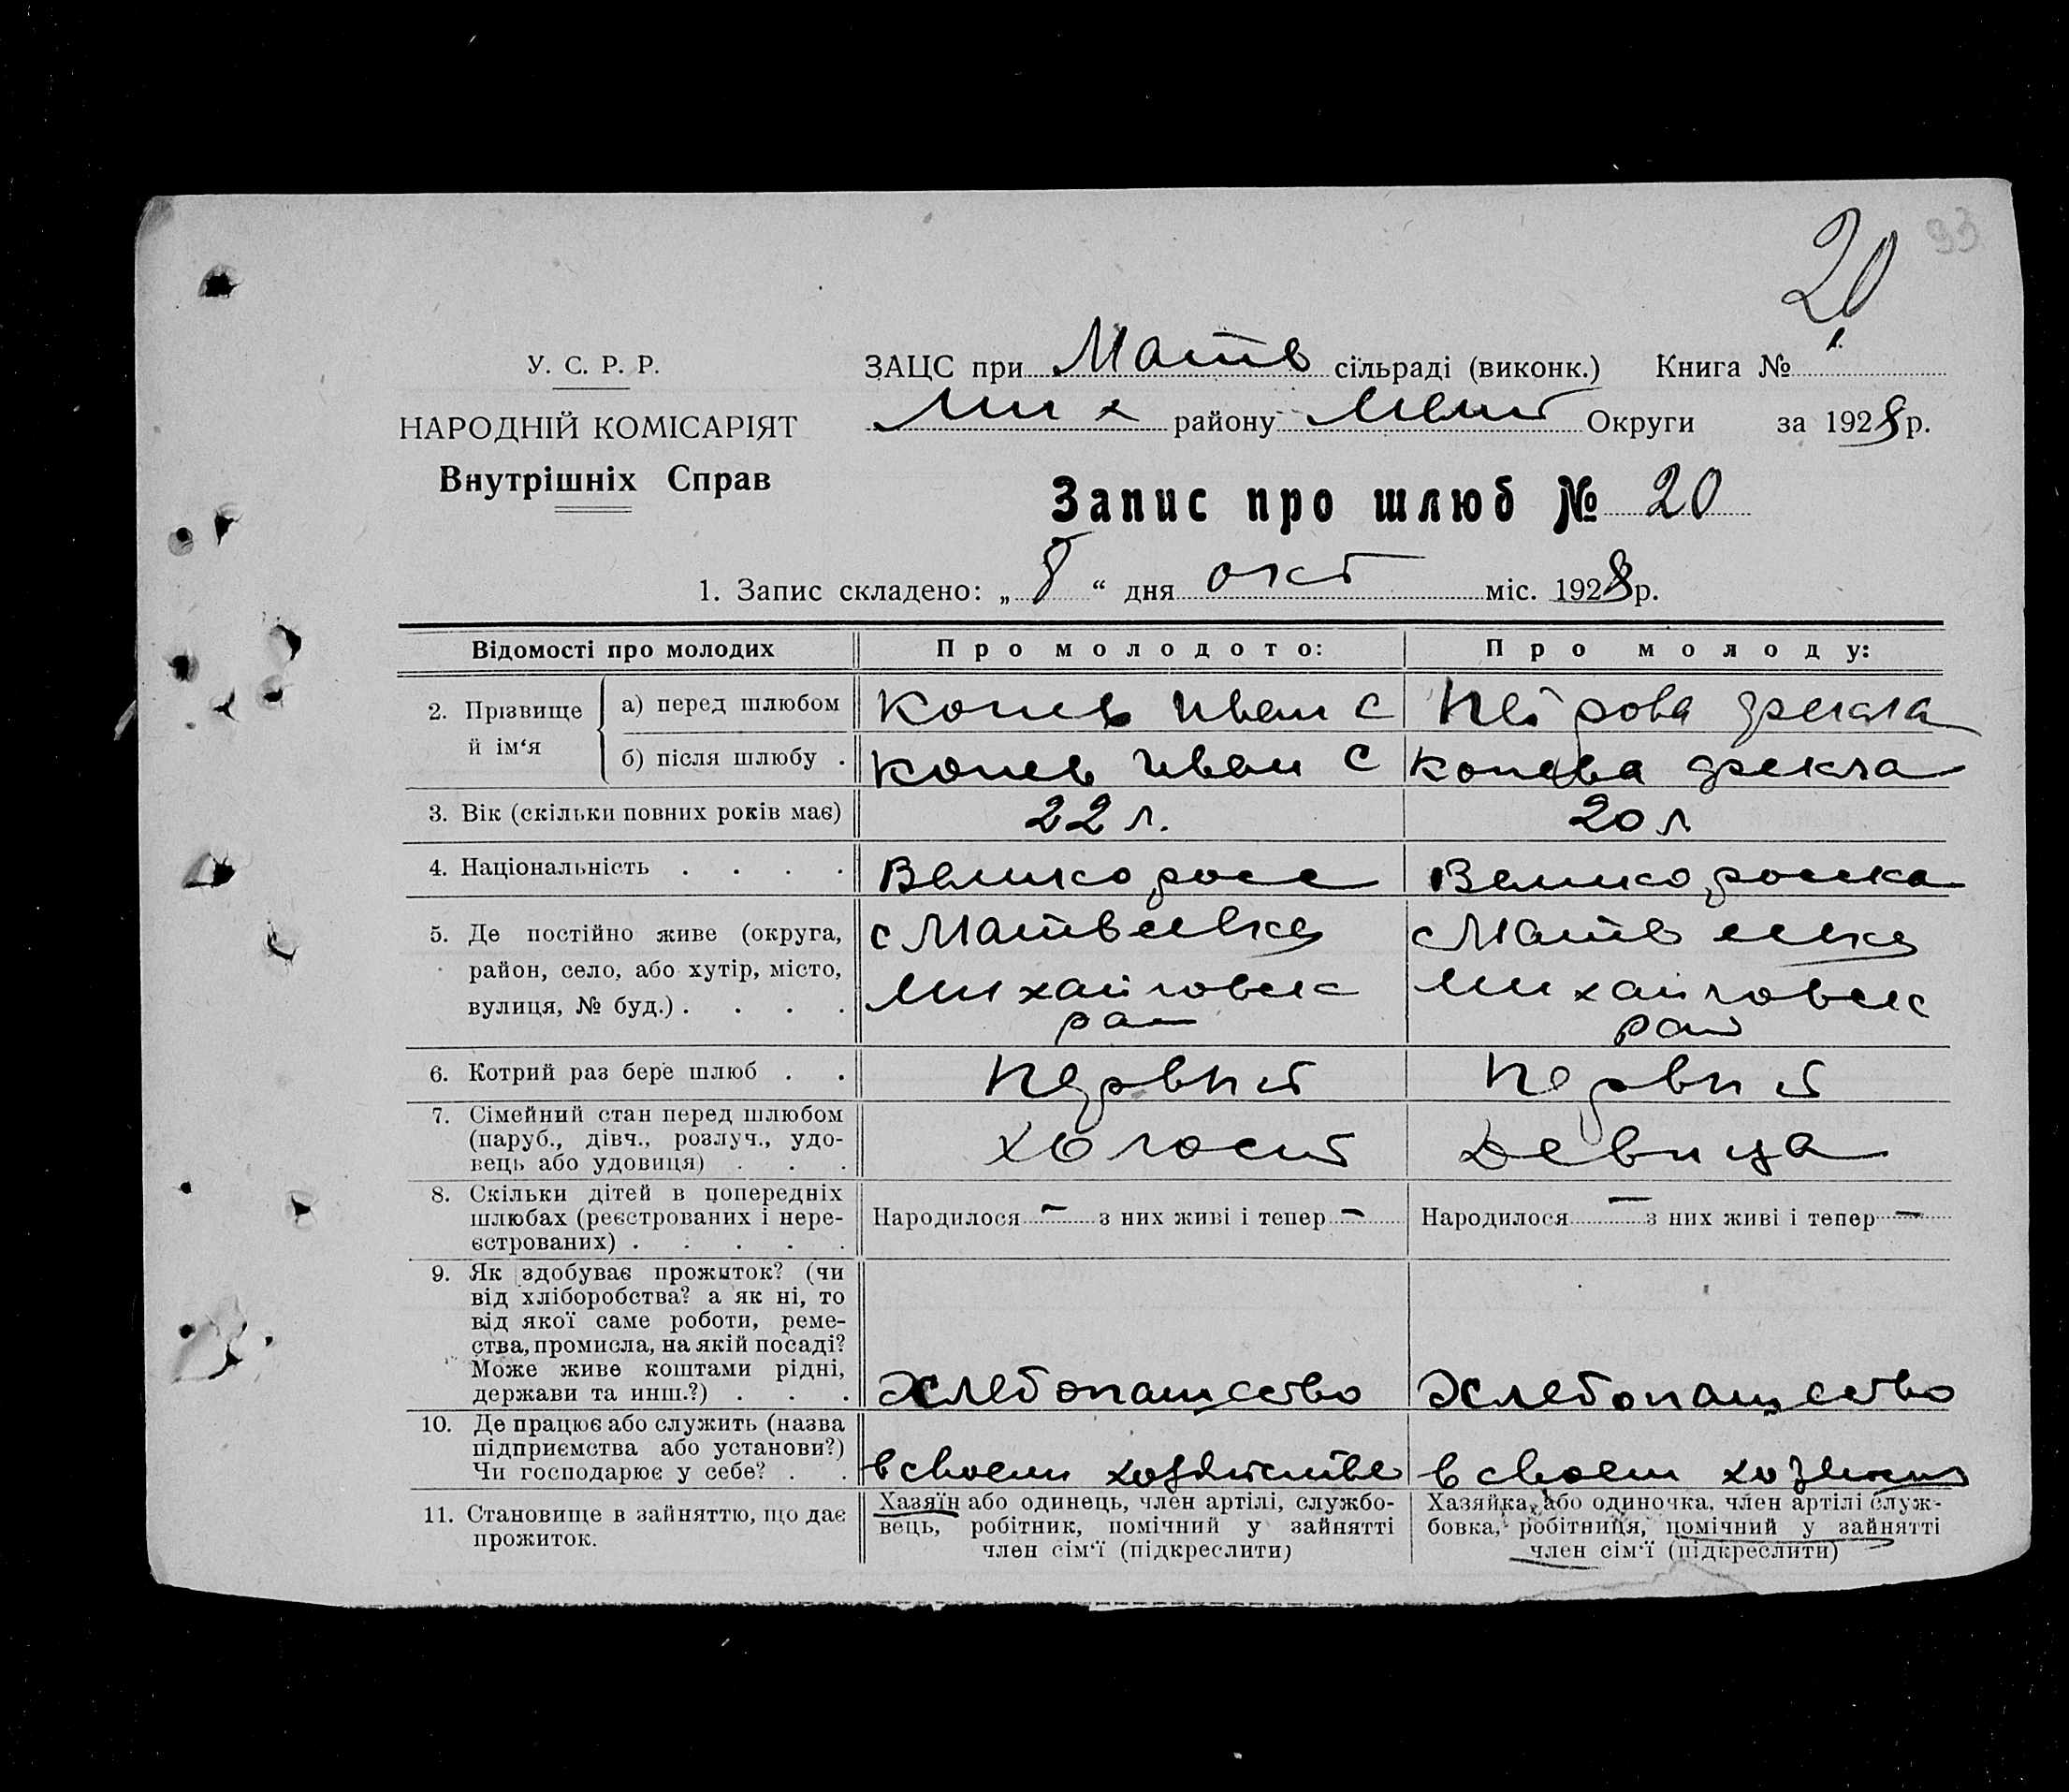 93
20
У. С. Р. Р.
ЗАЦС при Матв сільраді (виконк.) Книга № 1.
НАРОДНІЙ КОМІСАРІЯТ
Мих району Мелит Округи за 1928 р.
Внутрішніх Справ
Запис про шлюб № 20
1. Запис складено: „ 8 “ дня окт міс. 1928 р.
Відомості про молодих
Про молодого:
Про молоду:
2. Прізвище й ім‘я
а) перед шлюбом
Копев Иван С
Петрова Фекла
б) після шлюбу .
Копев Иван С
Копева Фекла
3. Вік (скільки повних років має)
22 л.
20 л
4. Національність . . . .
Великоросс
Великоросска
5. Де постійно живе (округа,
район, село, або хутір, місто,
вулиця, № буд.) . . . .
с Матвеевка
Михайловск
рай
с Матвеевка
Михайловск
рай
6. Котрий раз бере шлюб . .
Первый
Первый
7. Сімейний стан перед шлюбом
(паруб., дівч., розлуч., удо-
вець або удовиця) . . .
Холост
Девица
8. Скільки дітей в попередніх
шлюбах (реєстрованих і нере-
єстрованих) . . . . .
Народилося — з них живі і тепер —
Народилося — з них живі і тепер —
9. Як здобуває прожиток? (чи
від хліборобства? а як ні, то
від якої саме роботи, реме-
ства, промисла, на якій посаді?
Може живе коштами рідні,
держави та инш.?) . . .
Хлебопашество
Хлебопашество
10. Де працює або служить (назва
підприємства або установи?)
Чи господарює у себе? . .
в своем хозяйстве
в своем
11. Становище в зайняттю, що дає
прожиток.
Хазяїн або одинець, член артілі, службо-
вець, робітник, помічний у зайнятті
член сім‘ї (підкреслити)
Хазяйка, або одиночка, член артілі служ-
бовка, робітниця, помічний у зайнятті
член сім‘ї (підкреслити)